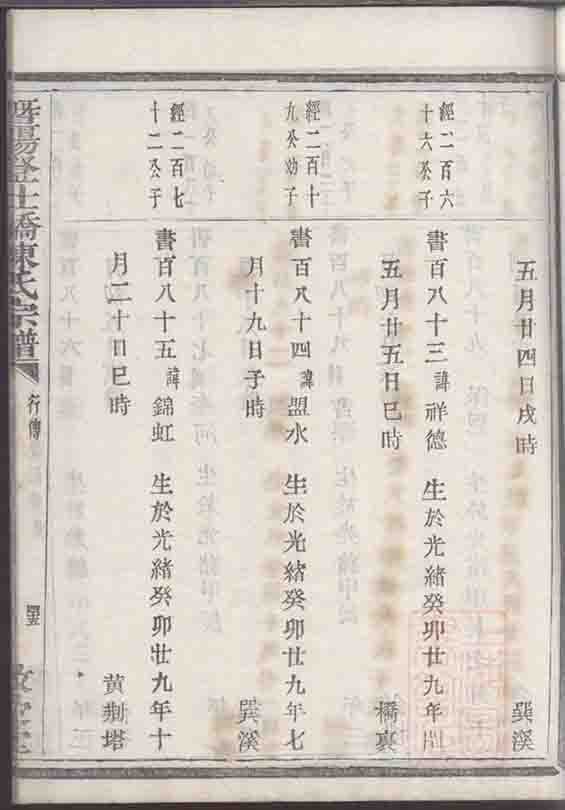 五月廿四日戌時
巽溪
經二百六
十六公子
書百八十三諱祥德 生於光緒癸卯廿九年
五月廿五日巳時
橋裏
經二百十
九公幼子
書百八十四諱盟水 生於光緒癸卯廿九年七
月十九日子時
巽溪
經二百七
十二公子
書百八十五諱錦虹 生於光緒癸卯廿九年十
月二十日巳時
黃荆塔
暨陽登仕橋陳氏宗譜
行傳